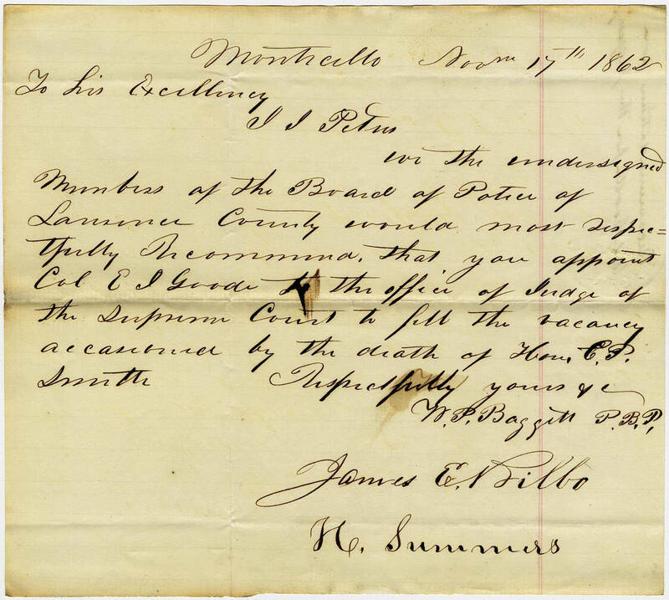 Monticello Novm 17th 1862
To his Excellency
J J Pettus
we the undersigned
Members of the Board of Police of
Lawrence County would most respec=
tfully Recommend, that you appoint
Col E J Goode to the office of Judge of
the Supreme Court to fill the vacancy
accasioned by the death of Hon, C. P.
Smith Respectfully yours &c
W. P. Baggett P. B. P,
James E. Bilbo
H. Summers